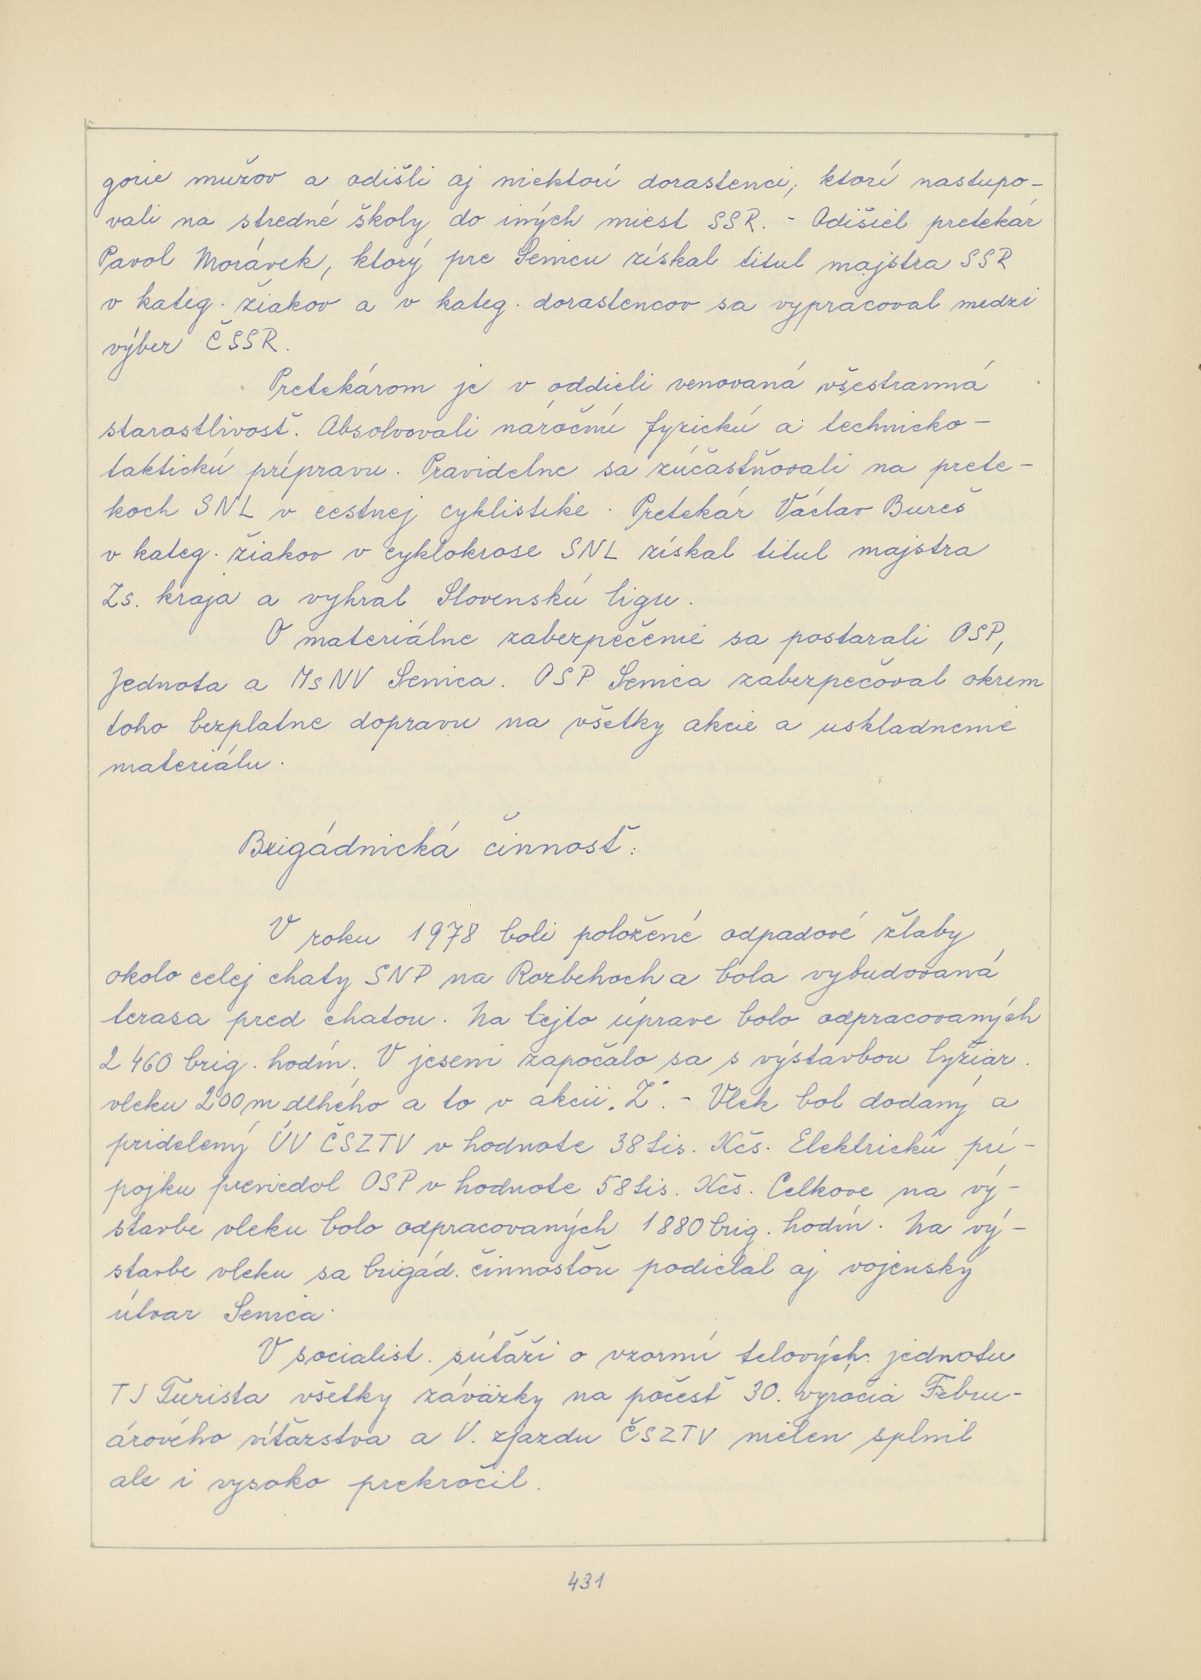 gorie mužov a odišli aj niektorí dorastenci, ktorí nastupo-
vali na stredné školy do iných miest SSR. - Odišiel pretekár
Pavol Morávek, ktorý pre Senicu získal titul majstra SSR
v kateg. žiakov a v kateg. dorastencov sa vypracoval medzi
výber ČSSR.
Pretekárom je v oddieli venovaná všestranná
starostlivosť. Absolvovali náročnú fyzickú a technicko-
taktickú prípravu. Pravidelne sa zúčastňovali na prete-
koch SNL v cestnej cyklistike. Pretekár Václav Bureš
v kateg. žiakov v cyklokrose SNL získal titul majstra
Zs. kraja a vyhral Slovenskú ligu.
O materiálne zabezpečenie sa postarali OSP,
Jednota a MsNV Senica. OSP Senica zabezpečoval okrem
toho bezplatne dopravu na všetky akcie a uskladnenie
materiálu.
Brigádnická činnosť:
V roku 1978 boli položené odpadové žlaby
okolo celej chaty SNP na Rozbehoch a bola vybudovaná
terasa pred chatou. Na tejto úprave bolo odpracovaných
2 460 brig. hodín. V jeseni započalo sa s výstavbou lyžiar.
vleku 200 m dlhého a to v akcii „Z". - Vlek bol dodaný a
pridelený ÚV ČSZTV v hodnote 38 tis. Kčs. Elektrickú prí-
pojku previedol OSP v hodnote 58 tis. Kčs. Celkove na vý-
stavbe vleku bolo odpracovaných 1 880 brig. hodín. Na vý-
stavbe vleku sa brigád. činnosťou podielal aj vojenský
útvar Senica.
V socialist. súťaži o vzornú telových. jednotu
TJ Turista všetky záväzky na počesť 30. výročia Febru-
árového víťazstva a V. zjazdu ČSZTV nielen splnil
ale i vysoko prekročil.
431